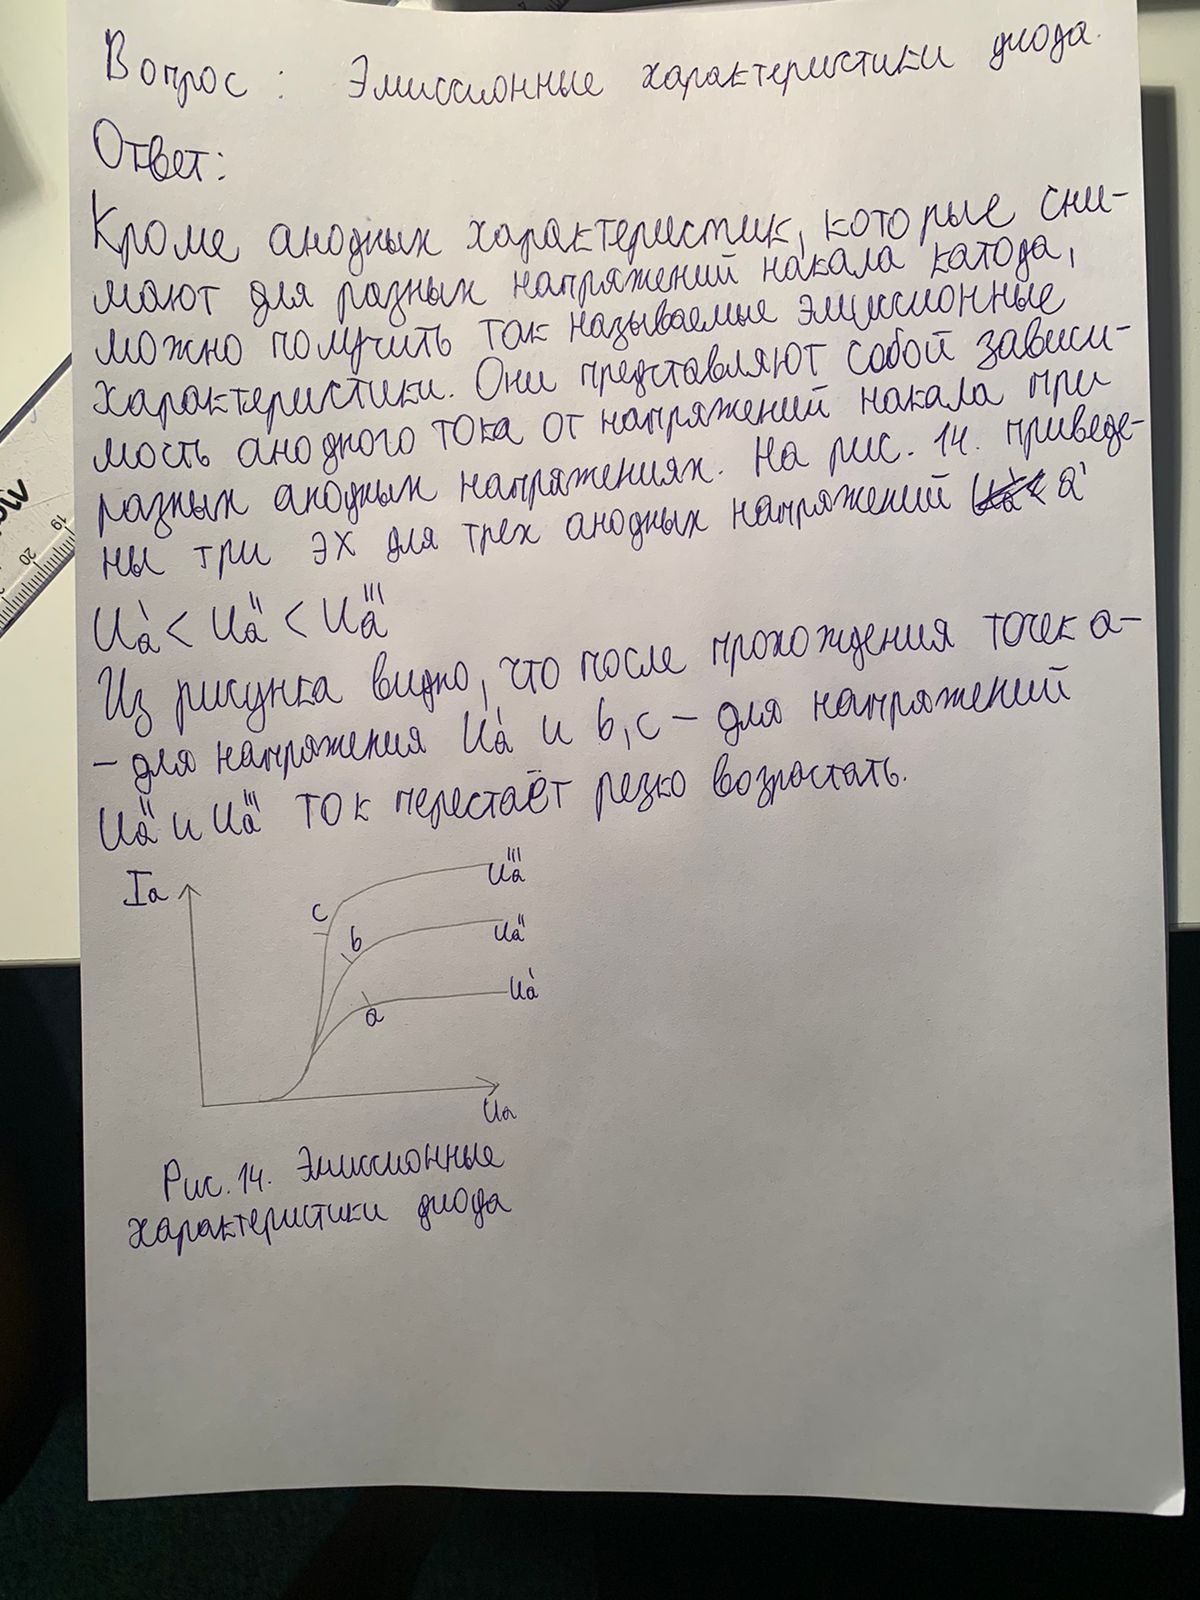 Вопрос: Эмиссионные характеристики диода.
Ответ:
Кроме анодных характеристик, которые сни-
мают для разных напряжений накала катода,
можно получить так называемые эмиссионные
характеристики. Они представляют собой зависи-
мость анодного тока от напряжений накала при
разных анодных напряжениях. На рис. 14. приведе-
ны три ЭХ для трех анодных напряжений a'
Ua' < Ua'' < Ua'''
Из рисунка видно, что после прохождения точек a-
- для напряжения Ua' и b, c - для напряжений
Ua'' и Ua''' ток перестаёт резко возрастать.
Ia
Ua'''
c
b
Ua''
Ua'
a
Ua
Рис. 14. Эмиссионные
характеристики диода
19
20